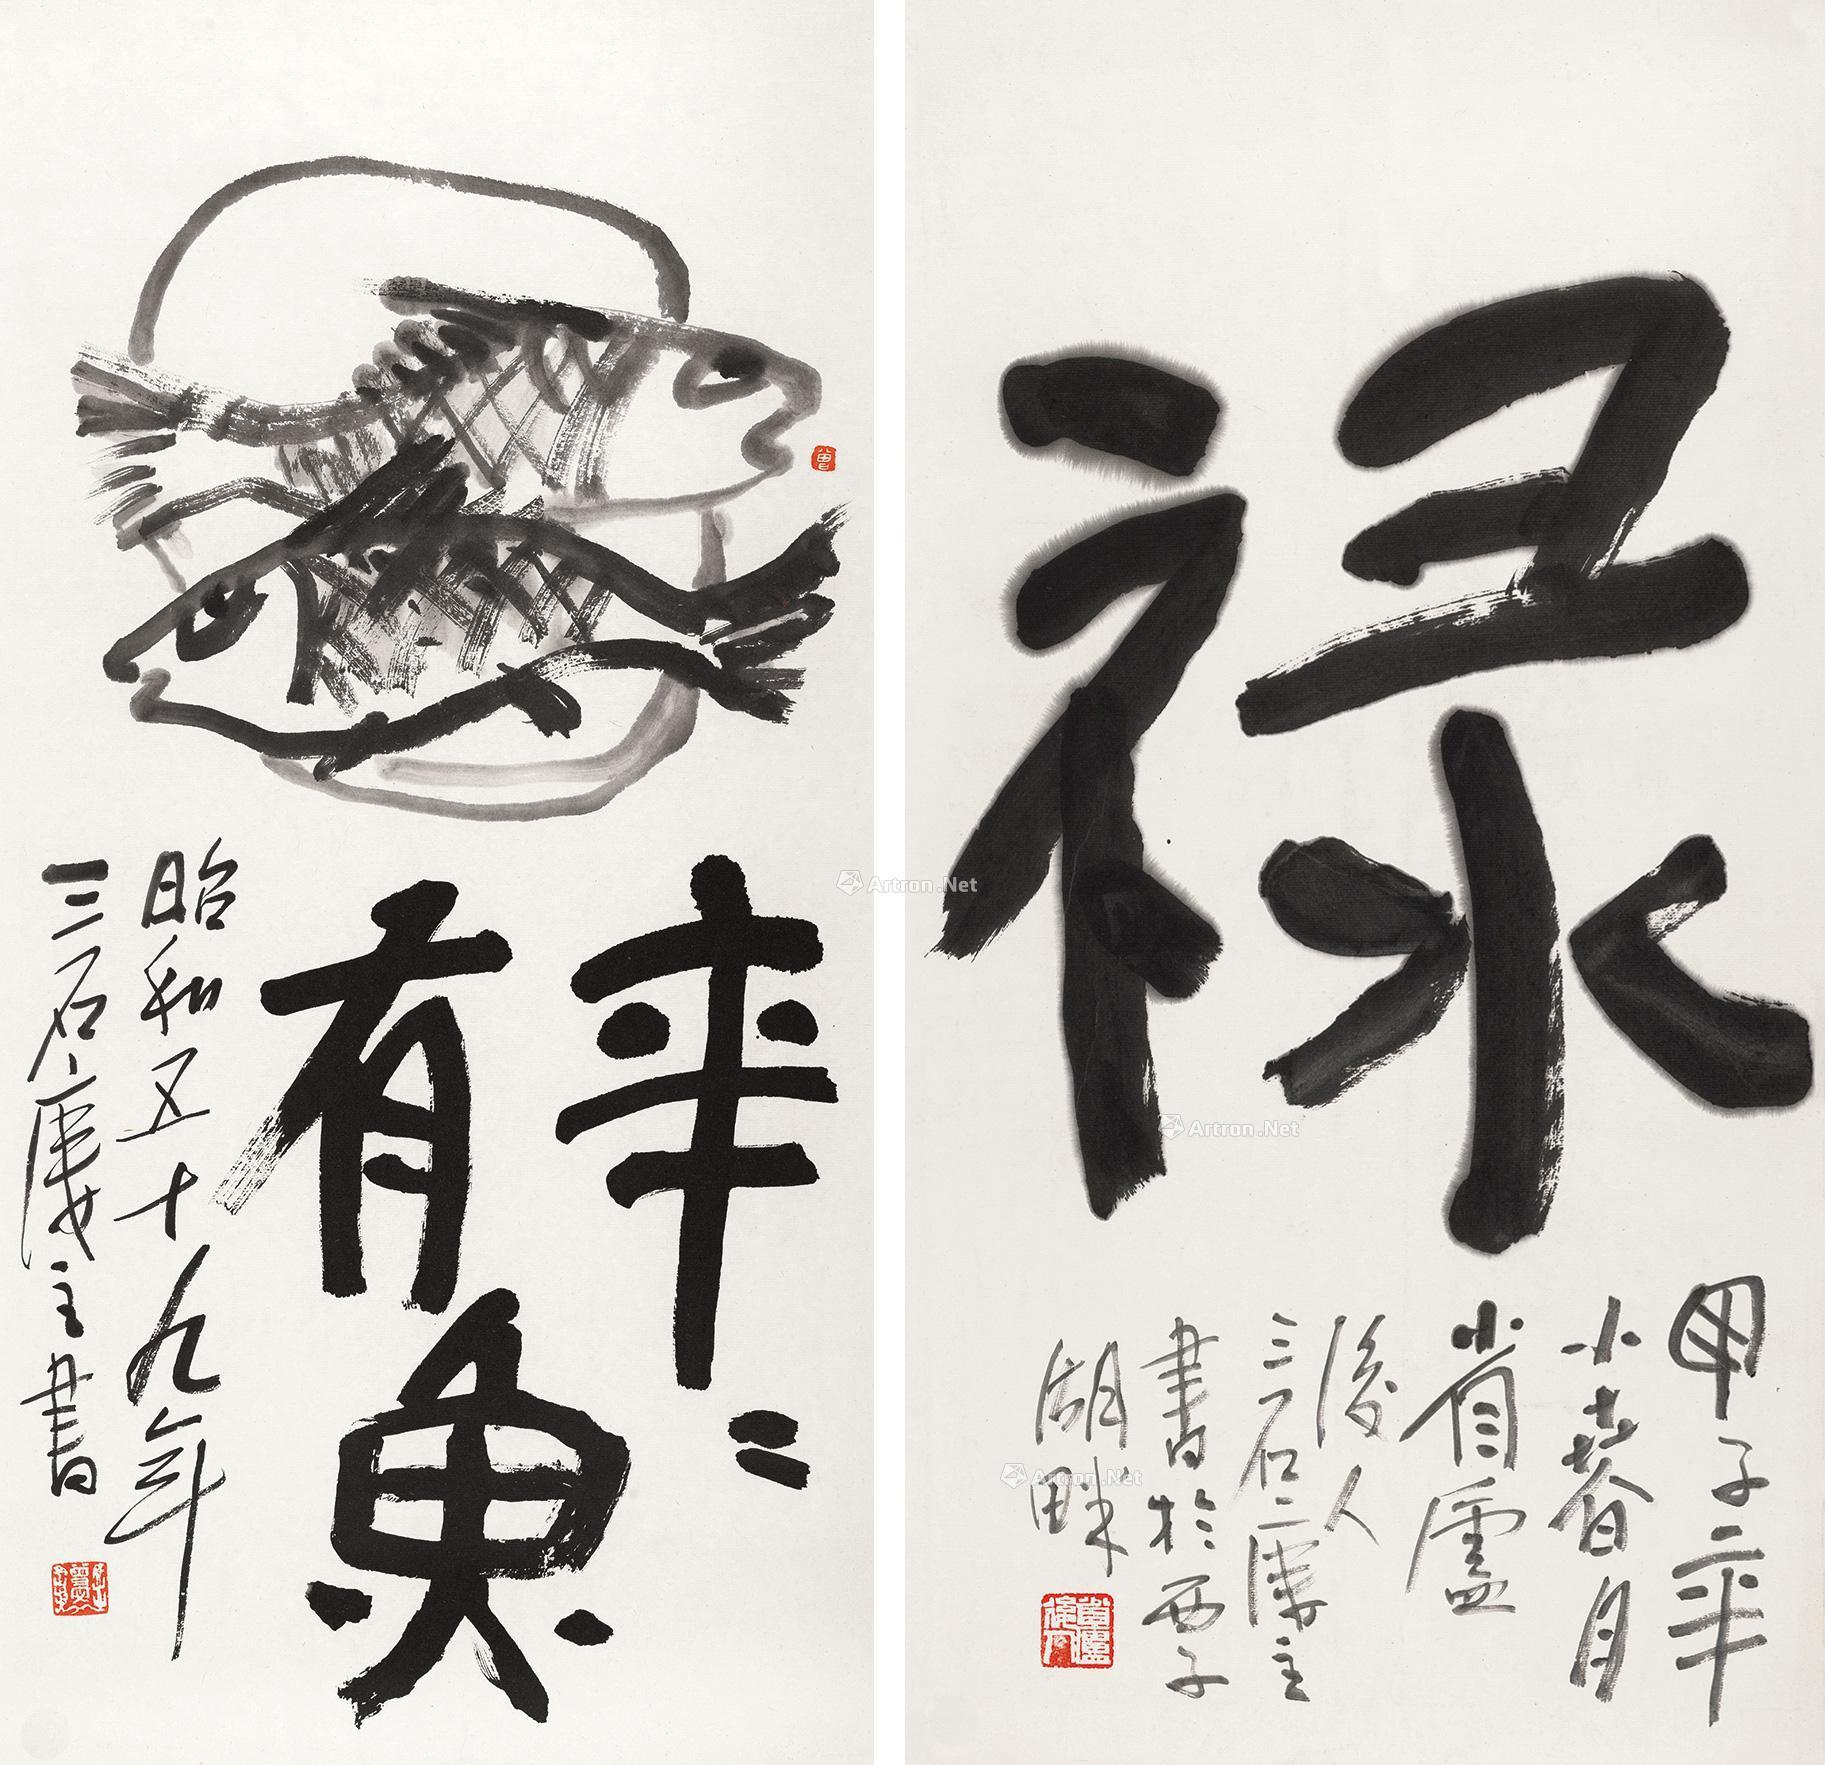 年〻
有魚
昭和五十九年
三石庼主書
禄
甲子年
小春月
省廬
後人
三石庼主
書於西子
湖畔
Artron.Net
Artron.Net
Artron.Net